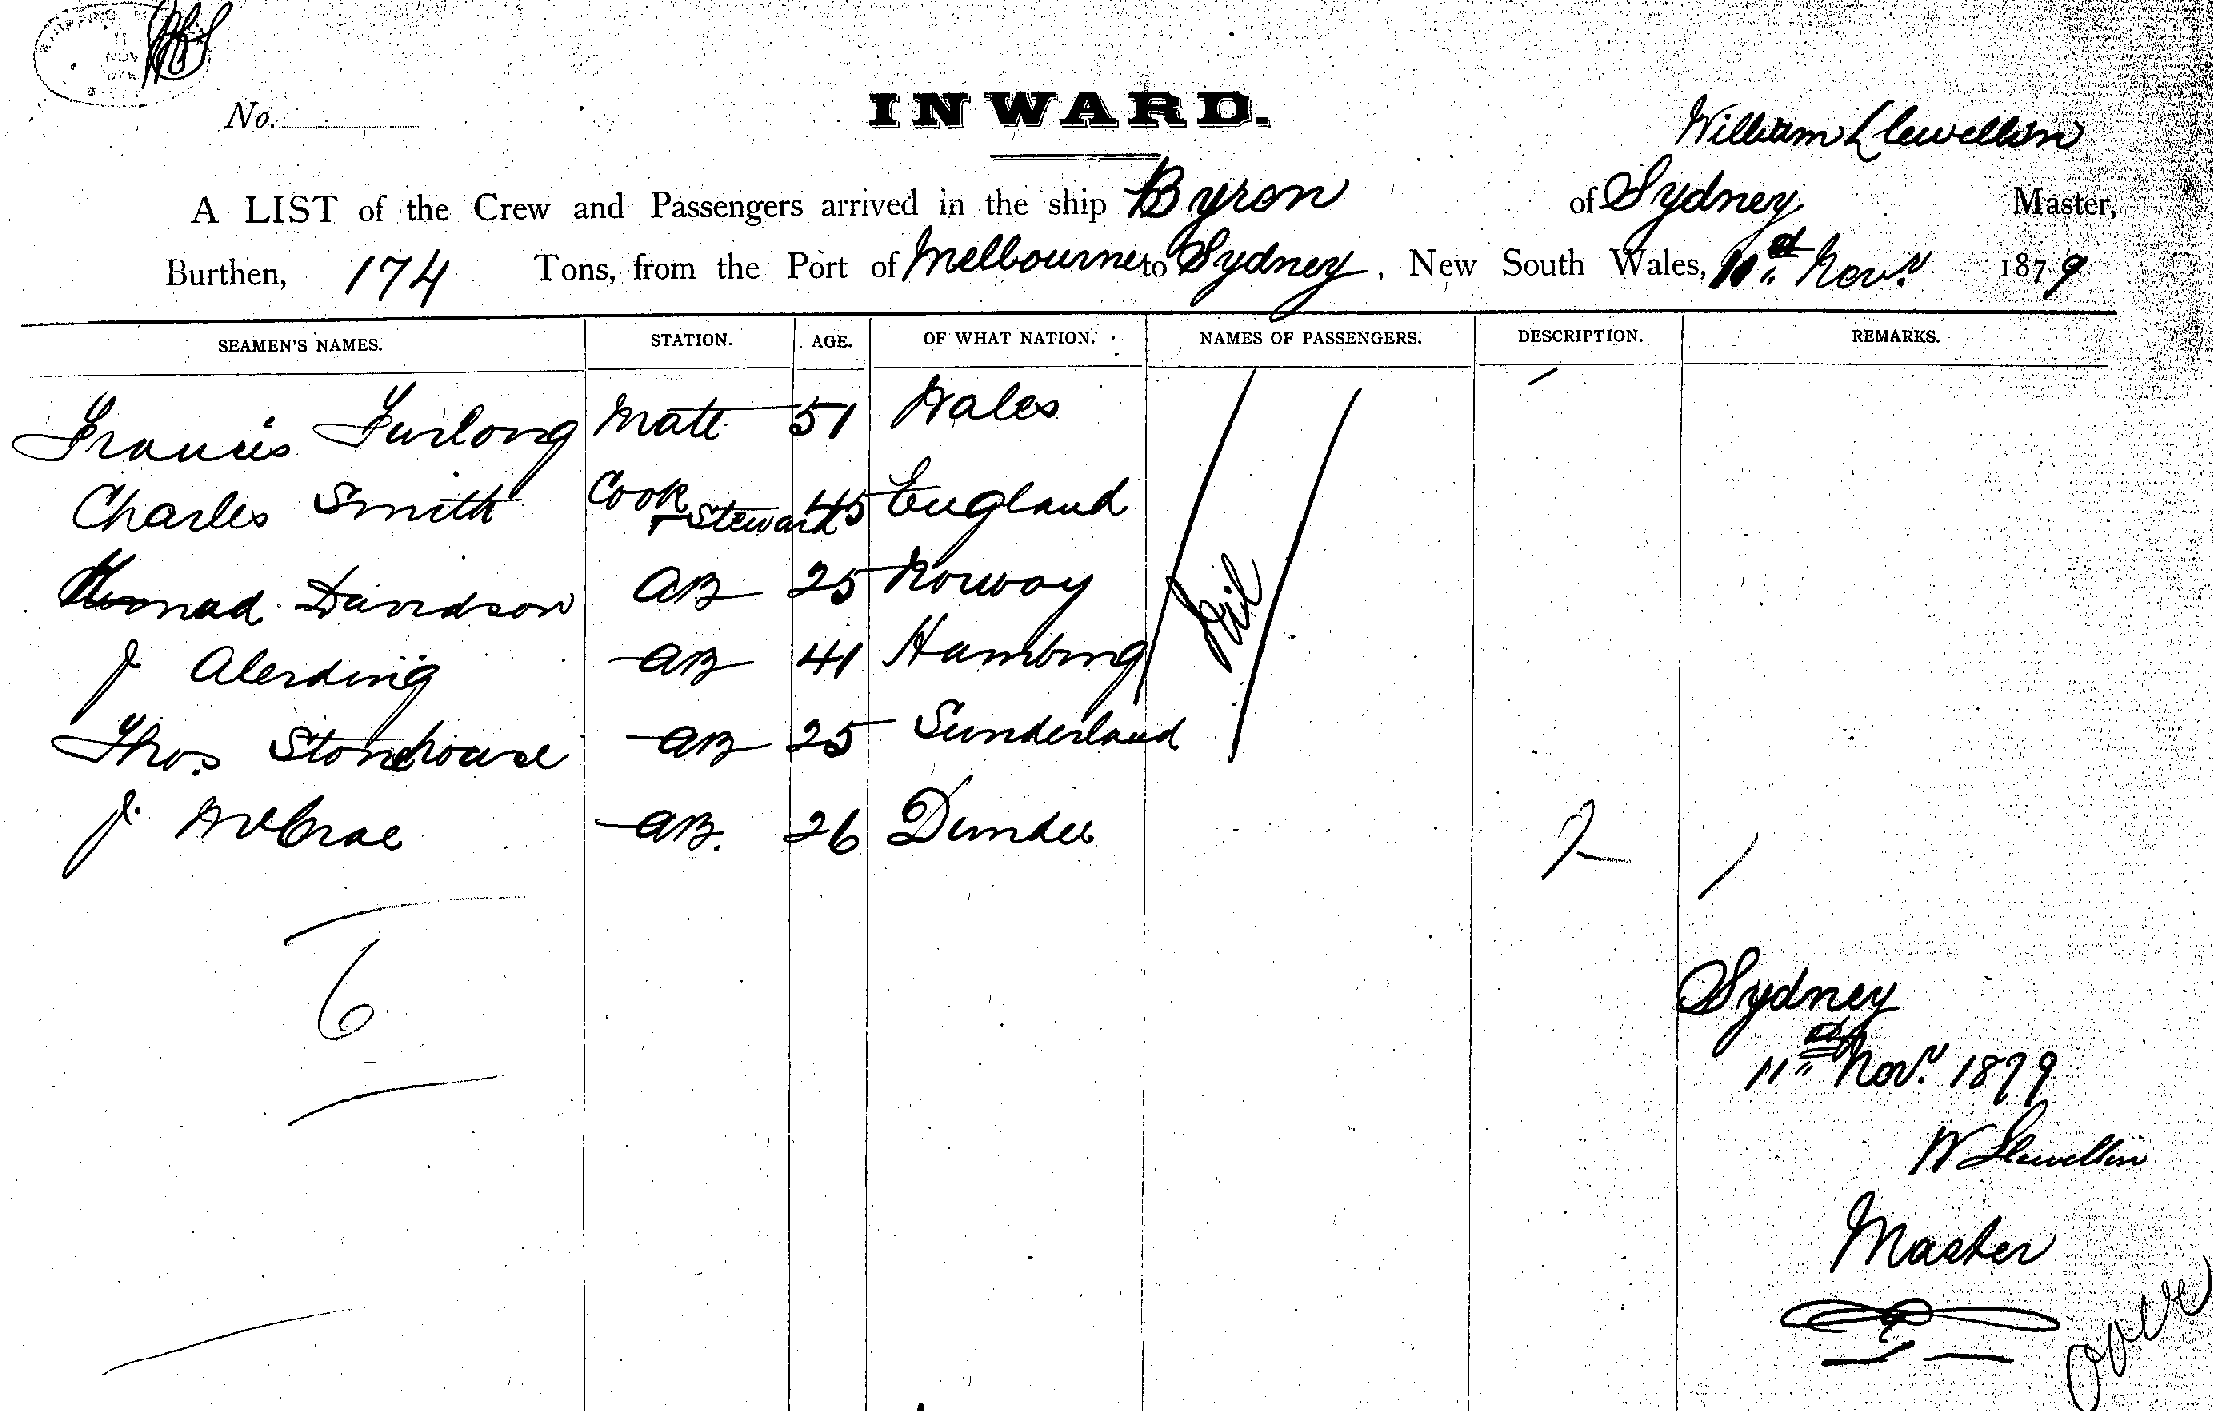 No.
INWARD.
William Llewellin
A LIST of the Crew and Passengers arrived in the ship Byron of Sydney Master,
Burthen, 174 Tons, from the Port of Melbourne to Sydney, New South Wales, 11th Novr. 1879
SEAMEN'S NAMES. STATION. AGE. OF WHAT NATION. NAMES OF PASSENGERS. DESCRIPTION. REMARKS.
Francis Furlong Mate 51 Wales
Charles Smith Cook + Steward 45 England
Davidson AB 25 Norway
Nil
J Alerding AB 41 Hamburg
Thos Stonehouse AB 25 Sunderland
J. McCrae AB. 26 Dundee
6
Sydney
11th Novr. 1879
W Llewellin
Master
over